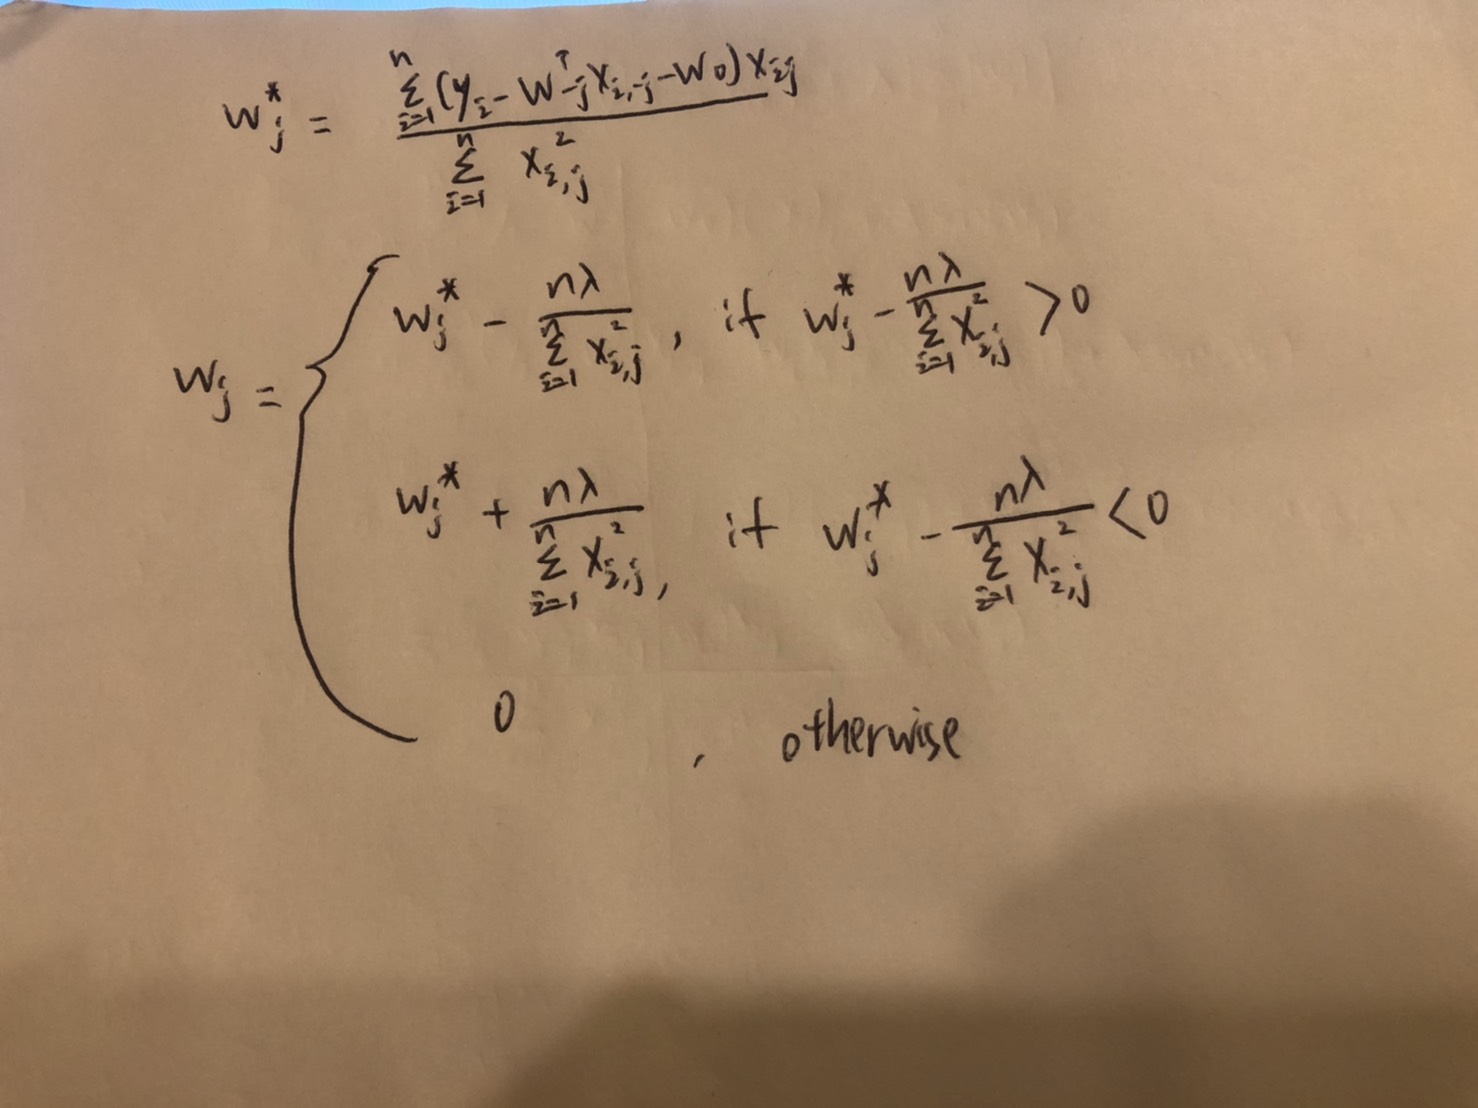 w_j^* = \frac{\sum_{i=1}^{n} (y_i - w_{-j}^T x_{i,-j} - w_0) x_{ij}}{\sum_{i=1}^{n} x_{i,j}^2}
w_j = { w_j^* - \frac{nλ}{\sum_{i=1}^{n} x_{i,j}^2} , if w_j^* - \frac{nλ}{\sum_{i=1}^{n} x_{i,j}^2} > 0
w_j^* + \frac{nλ}{\sum_{i=1}^{n} x_{i,j}^2} , if w_j^* - \frac{nλ}{\sum_{i=1}^{n} x_{i,j}^2} < 0
0 , otherwise